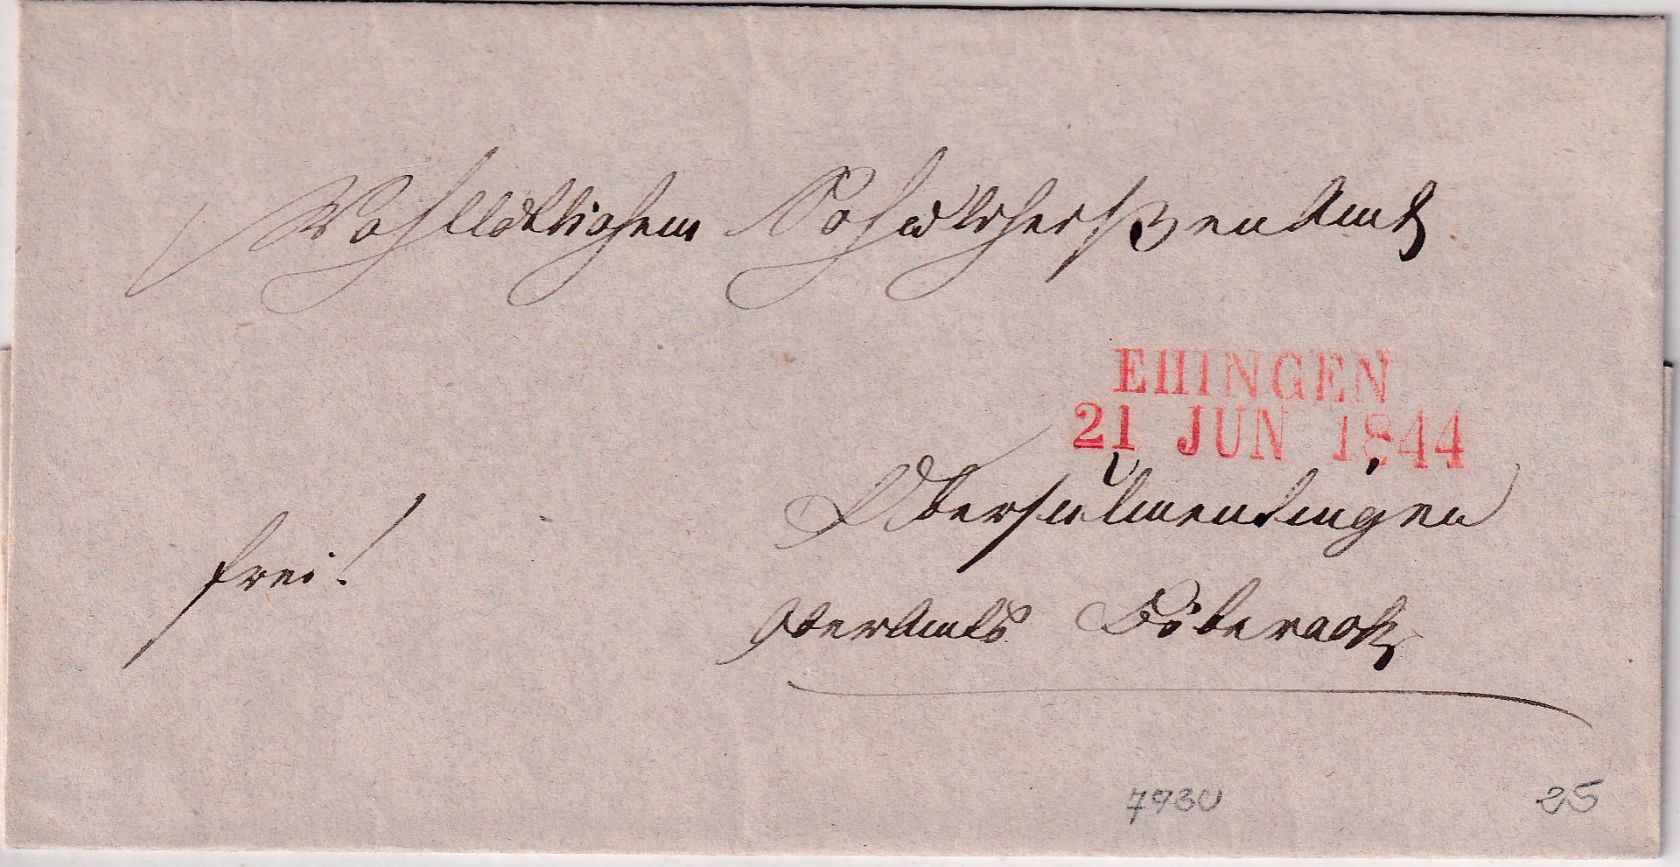 Wohllöblichem Schultheißenamt
EHINGEN
21 JUN 1844
Obersulmentingen
frei!
Oberamts Biberach
7930
25